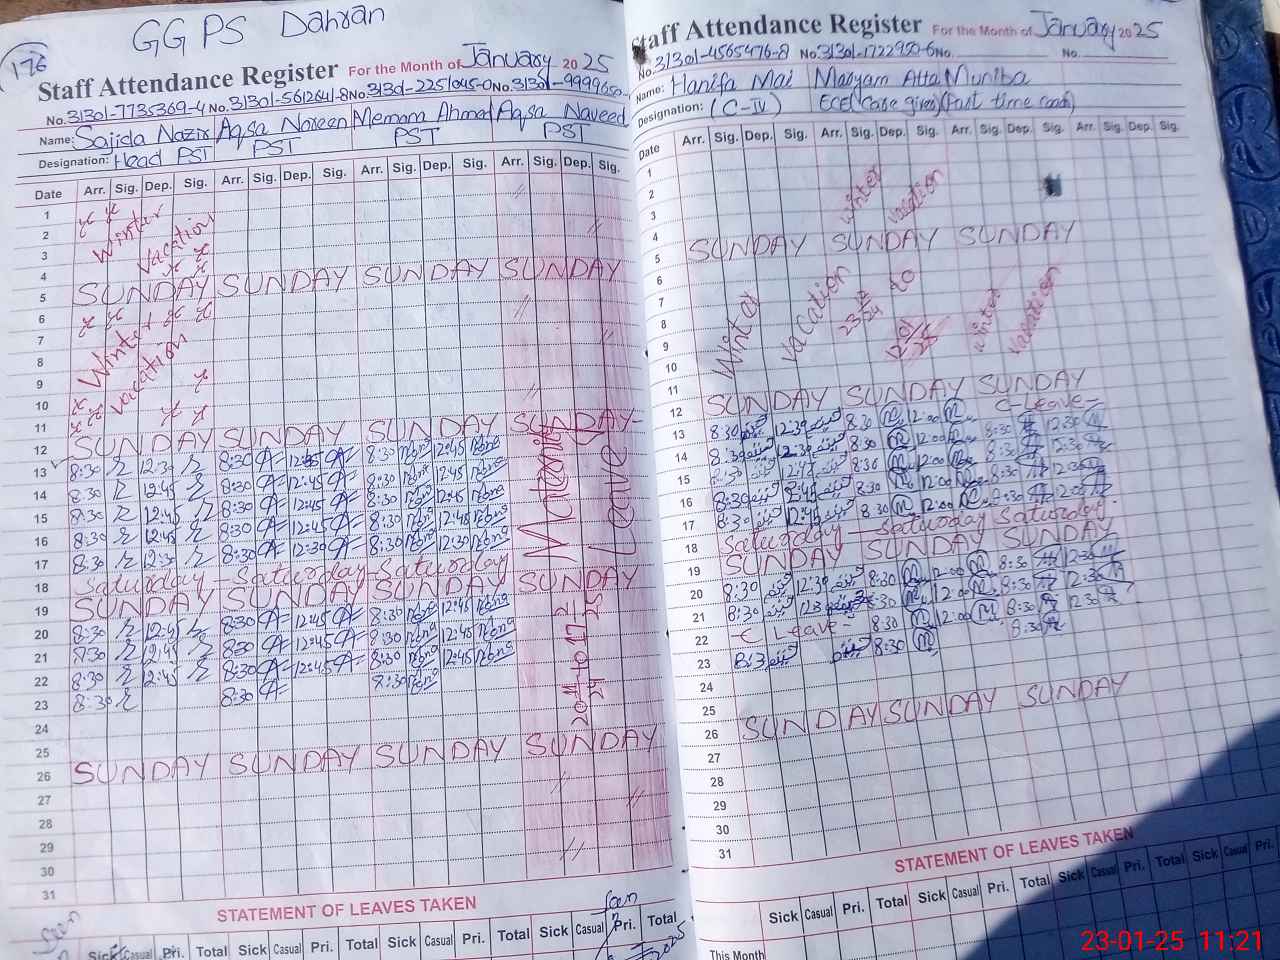 GGPS Dahran
176
Staff Attendance Register For the Month of January 2025
No. 31301-7735369-4 No. 31301-5612641-8 No. 31301-2251045-0 No. 31301-9999650-
Name: Sajida Nazir Aqsa Noreen Memona Ahmed Aqsa Naveed
Designation: Head PST PST PST PST
Date Arr. Sig. Dep. Sig. Arr. Sig. Dep. Sig. Arr. Sig. Dep. Sig. Arr. Sig. Dep. Sig.
1
2 Winter
3 vacation
4
5 SUNDAY SUNDAY SUNDAY SUNDAY
6
7 Winter
8 vacation
9
10
11
12 SUNDAY SUNDAY SUNDAY SUNDAY
13 8:30 12:30 8:30 12:45 8:30 12:45
14 8:30 12:45 8:30 12:45 8:30 12:45
15 8:30 12:45 8:30 12:45 8:30 12:45
16 8:30 12:45 8:30 12:45 8:30 12:45
17 8:30 12:30 8:30 12:30 8:30 12:30
18 Saturday - Saturday - Saturday
19 SUNDAY SUNDAY SUNDAY SUNDAY
20 8:30 12:45 8:30 12:45 8:30 12:45
21 8:30 12:45 8:30 12:45 8:30 12:45
22 8:30 12:45 8:30 12:45 8:30 12:45
23 8:30 8:30 8:30
24
25
26 SUNDAY SUNDAY SUNDAY SUNDAY
27
28
29
30
31
Maternity Leave
STATEMENT OF LEAVES TAKEN
Seen
Seen
Sick Casual Pri. Total Sick Casual Pri. Total Sick Casual Pri. Total Sick Casual Pri. Total
Staff Attendance Register For the Month of January 2025
No. 31301-4565476-8 No. 31301-1722950-6 No. No.
Name: Hanifa Mai Maryam Atta Muniba
Designation: (C-IV) ECE (Care giver) (Part time coach)
Date Arr. Sig. Dep. Sig. Arr. Sig. Dep. Sig. Arr. Sig. Dep. Sig. Arr. Sig. Dep. Sig.
1
2 winter vacation
3
4
5 SUNDAY SUNDAY SUNDAY
6
7
8 Winter vacation 23/12/24 to winter vacation
9
10
11
12 SUNDAY SUNDAY SUNDAY
C-Leave-
13 8:30 12:30 8:30 12:00 8:30 12:30
14 8:30 12:30 8:30 12:00 8:30 12:30
15 8:30 12:45 8:30 12:00 8:30 12:30
16 8:30 8:45 8:30 12:00 8:30 12:00
17 8:30 12:45 8:30 12:00
18 Saturday - Saturday Saturday
19 SUNDAY SUNDAY SUNDAY
20 8:30 12:30 8:30 12:00 8:30 12:30
21 8:30 12:30 8:30 12:00 8:30 12:30
22 - C Leave - 8:30 12:00 8:30 12:30
23 8:30 8:30 8:30
24
25
26 SUNDAY SUNDAY SUNDAY
27
28
29
30
31
STATEMENT OF LEAVES TAKEN
Sick Casual Pri. Total Sick Casual Pri. Total Sick Casual Pri. Total Sick Casual Pri.
This Month
23-01-25 11:21